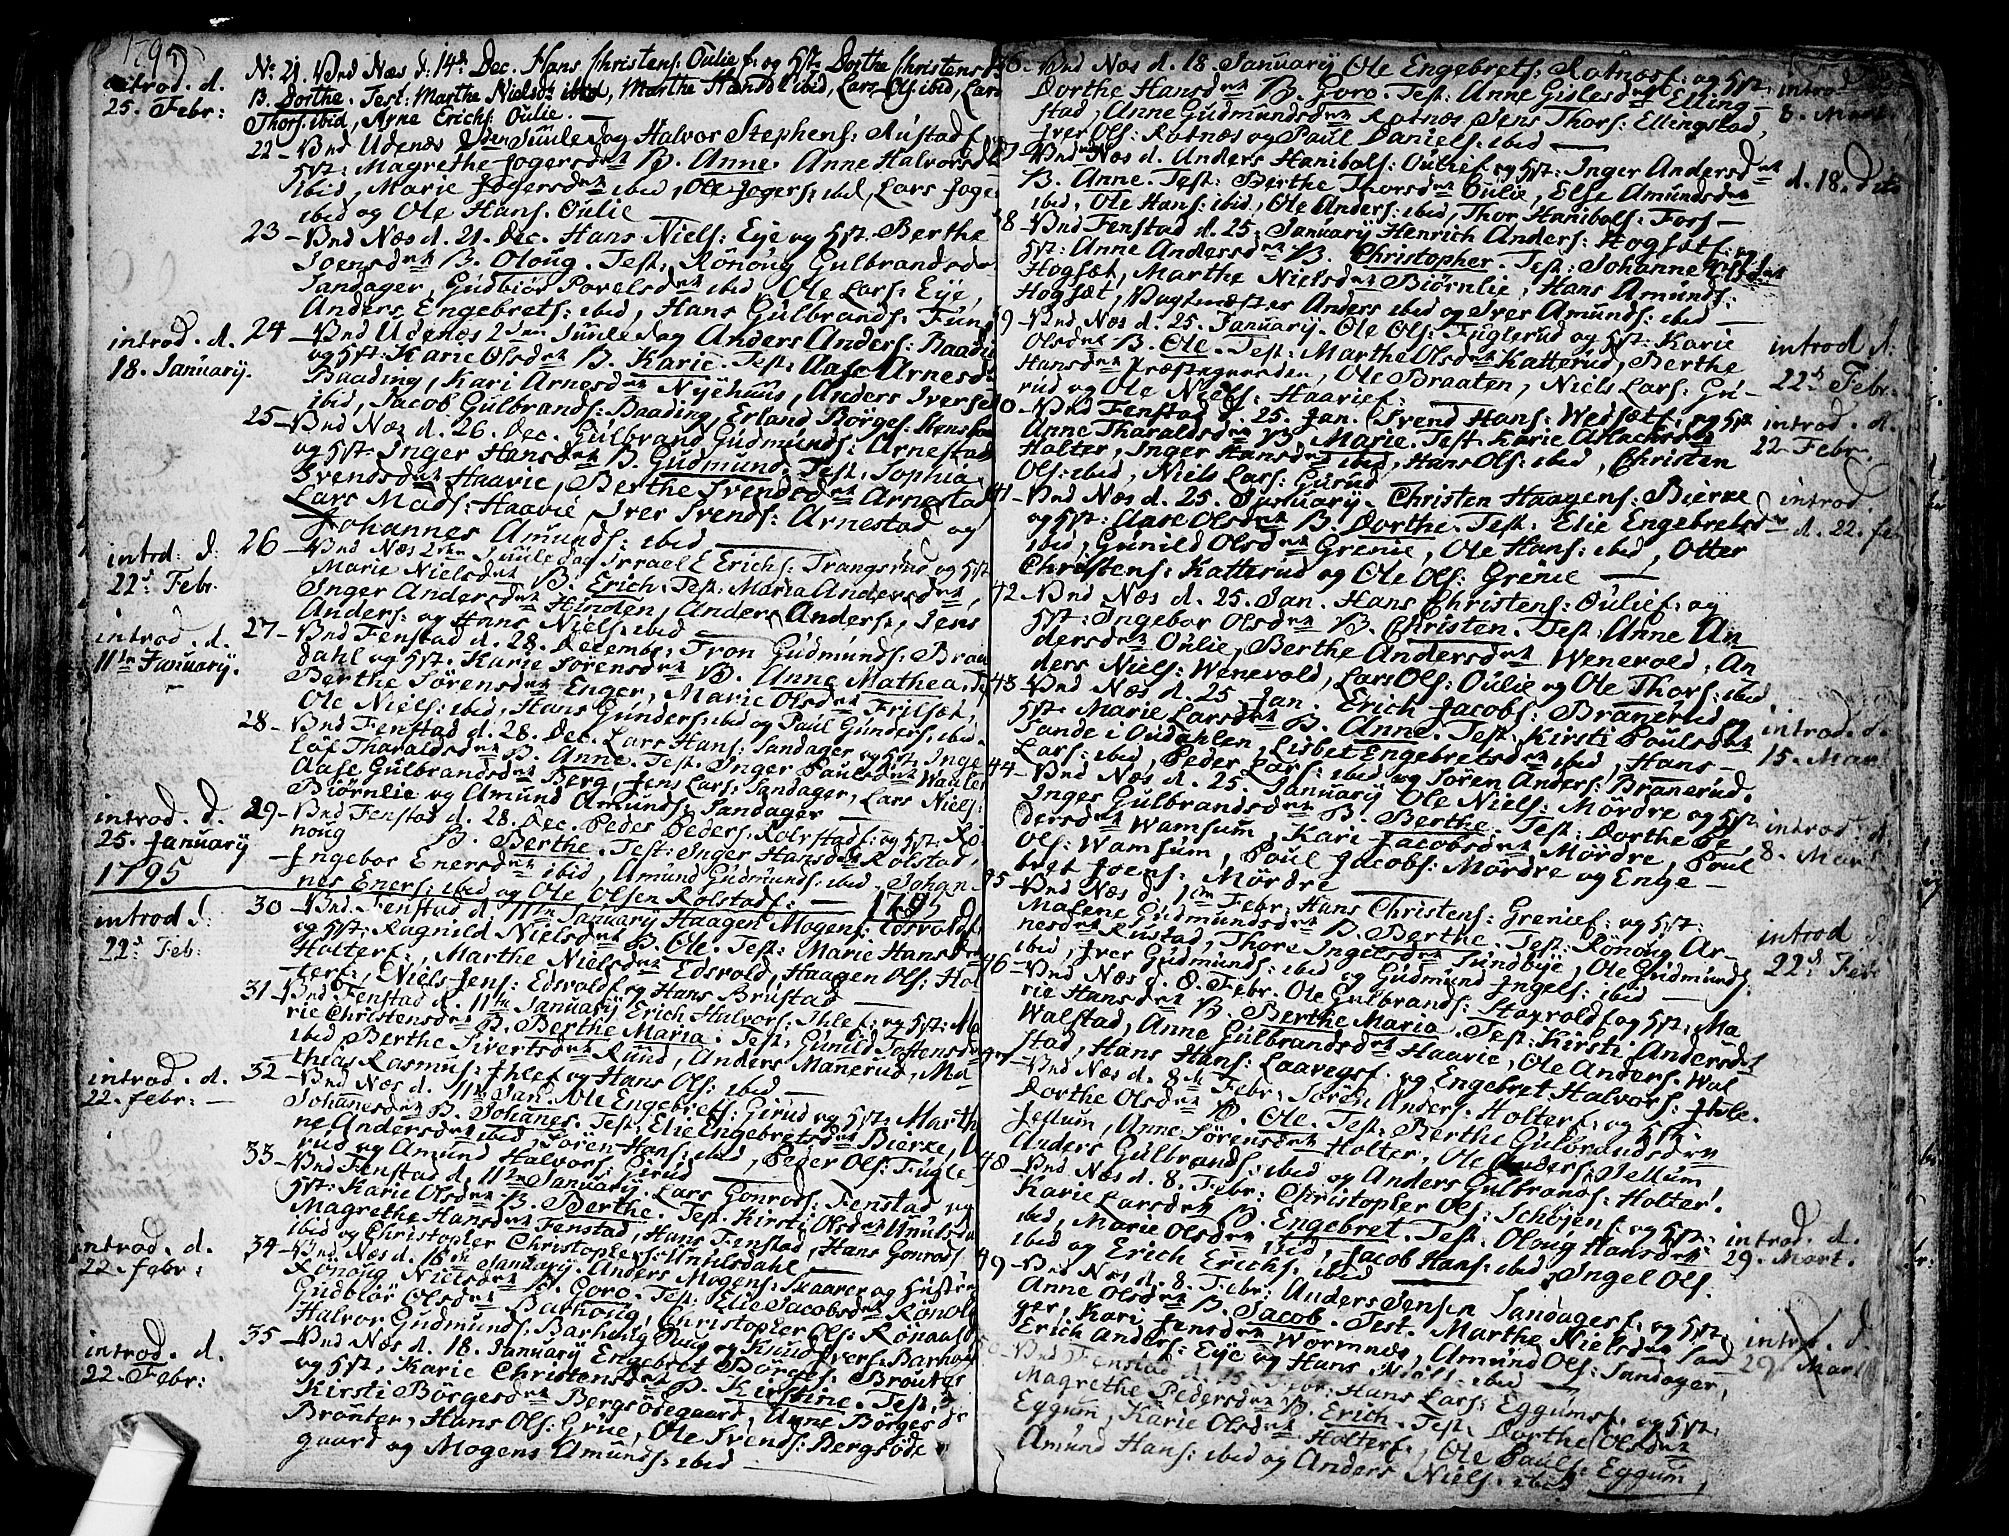 1795
introd. d.
25. Febr:
No 21. Vnd Næs d: 14de Dec. Hans Christens: Oulie f. og Hst. Dorthe Christensd
B. Dorthe. Test: Marthe Nielsdr ibid, Marthe Hansd ibid, Lars Ols: ibid, Lars
Thors: ibid, Arne Erichs: Oulie.
22 – Vnd Udenæs Juuledag Halvor Stephens: Rustad f.
Hst: Magrethe Jogersdr B. Anne. Anne Halvorsd
ibid, Marie Jogersdr ibid, Ole Jogers: ibid, Lars Joge
ibid og Ole Hans: Oulie
23 – Vnd Næs d. 21. Dec. Hans Niels: Eye og Hst. Berthe
Joensdr B. Oloug. Test: Rönoug Gulbrandsdr
Sandager, Gudbiör Povelsdr ibid, Ole Lars: Eye,
Anders Engebrets: ibid, Hans Gulbrands: Fun
introd. d.
18. January.
24 – Vnd Udenæs 2den Juuledag Anders Anders: Baadi
og Hst: Karie Olsdr B. Karie. Test: Aase Arnesd
Baading, Kari Arnesdr Nyehuus, Anders Iversen
ibid, Jacob Gulbrands: Baading, Erland Börges:
25 – Vnd Næs d. 26. Dec. Gulbrand Gudmunds: Arnestad
og Hst. Inger Hansdr B. Gudmund. Test: Sophia
Svendsdr Haavie, Berthe Svendsdr Arnestad
Lars Mads: Haavie, Iver Svends: Arnestad og
Johannes Amunds: ibid
introd: d:
22d Febr.
26 – Vnd Næs 2den Juuledag Israel Erichs: Trangsrud og Hst
Marie Nielsdr B. Erich. Test: Maria Andersdr,
Inger Andersdr Hinden, Anders Anders:, Jens
Anders: og Hans Niels: ibid
introd. d.
11te January.
27 – Vnd Fenstad d. 28. Decemb: Tron Gudmunds: Brau
dahl og Hst. Karie Sörensdr B. Anne Mathea. Te
Berthe Sörensdr Enger, Marie Olsdr Frilset,
Ole Niels: ibid, Hans Gunders: ibid og Paul Gunders: ibid.
28 – Vnd Fenstad d. 28. Dec. Lars Hans: Sandager og Hst. Inge
Tharaldsdr B. Anne. Test: Inger Paulsdr Waaler
Aase Gulbrandsdr Berg, Jens Lars: Sandager, Lars Niels:
Biörnlie og Amund Amunds: Sandager
introd. d.
25. January
29 – Vnd Fenstad d. 28. Dec. Peder Peders: Rolstad f. og Hst: Rö
noug B. Berthe. Test: Inger Hansdr Rolstad,
Ingebor Enersdr ibid, Amund Gudmunds: ibid, Johan
nes Eners: ibid og Ole Olsen Rolstad f: —
1795
1795
introd d.
22d Feb:
30 – Vnd. Fenstad d. 11te January Haagen Mogens: Edsvold f.
og Hst: Ragnild Nielsdr B. Ole. Test: Marie Hansdr
Holter f., Marthe Nielsdr Edsvold, Haagen Ols: Hol
ter f., Niels Jens: Edsvold og Hans Brustad
31 – Vnd Fenstad d. 11te January Erich Halvors: Ihle f: og Hst: Ma
rie Christensdr B. Berthe Maria. Test: Gunild Toftensdr
ibid Berthe Sivertsdr Ruud, Anders Manerud, Ma
thias Rasmus: Ihle f. og Hans Ols: ibid
introd. d.
22. febr: —
32 – Vnd Næs d. 11te Jan. Ole Engebrets: Girud og Hst: Marth
Johanesdr B. Johanes. Test: Elie Engebretsdr Bierke,
ne Andersdr ibid, Sören Hans: ibid, Peder Ols: Fugle
rud og Amund Halvors: Girud
33 – Vnd Fenstad d. 11te January. Lars Gonrods: Fenstad og
Hst: Karie Olsdr B. Berthe. Test: Kirsti Olsdr Unulsda
Magrethe Hansdr Fenstad, Hans Fenstad, Hans Gonrods
ibid og Christopher Christophers: Unnilsdahl —
introd. d.
22. febr:
34 – Vnd. Næs d. 18de January. Anders Mogens: Skaarer og Hustr
Rönoug Nielsdr B. Goro. Test: Elie Jacobsdr Ronold
Gudblör Olsdr Barhoug, Christopher Ols: Ronaald
Halvor Gudmunds: Barhoug og Knud Ivers: Barhou
introd. d.
22. Febr:
35 – Vnd Næs d. 18. January Engebret Börges: Brouter
og Hst. Karie Christensdr B. Kirstine. Test:
Kirsti Börgesdr Bergsödegaard, Anne Börgesdr
Brönter, Hans Ols: Grue, Ole Svends: Bergsöde
gaard og Mogens Amunds: ibid —
36 – Vnd Næs d. 18. January Ole Engebrets: Rotnæs f: og Hst:
Dorthe Hansdr B. Goro. Test: Anne Gislesdr Elling
stad, Anne Gudmundsdr Rotnæs Jens Thors: Ellingstad,
Iver Ols: Rotnæs og Paul Daniels: ibid —
introd
8. Mart.
37 – Vnd Næs d. Anders Hanibals: Oulie f. og Hst: Inger Andersdr
B. Anne. Test: Berthe Thorsdr Oulie, Else Amundsdr
ibid, Ole Hans: ibid, Ole Anders: ibid, Thor Hanibals: Foss —
d. 18. dito
38 – Vnd Fenstad d. 25. January Henrich Anders: Hogsæt f: og
Hst: Anne Andersdr B. Christopher. Test: Johanne
Hogsæt, Marthe Nielsdr Biörnlie, Hans Amunds:
Hogsæt, Anders ibid og Iver Amunds: ibid —
39 – Vnd Næs d. 25. January. Ole Ols: Fuglerud og Hst: Karie
Olsdr B. Ole. Test: Marthe Olsdr Katterud, Berthe
Hansdr Præstegaarden, Ole Braaten, Niels Lars: Gu
rud og Ole Niels: Haarie f:
introd d:
22d Febr.
40 – Vnd Fenstad d. 25. Jan. Svend Hans: Wedsæt f. og Hst
Anne Tharaldsdr B. Marie. Test: Karie Aslachsdr
Holter, Inger Hansdr ibid, Hans Ols: ibid, Christen
Ols: ibid, Niels Lars: Gurud
introd. d.
22 Febr.
41 – Vnd Næs d. 25. January. Christen Haagens: Bierke
og Hst: Aase Olsdr B. Dorthe. Test: Elie Engebretsdr
ibid, Gunild Olsdr Grenie, Ole Hans: ibid, Otter
Christens: Katterud og Ole Ols: Grenie —
introd.
d. 22. feb
42 – Vnd Næs d. 25. Jan. Hans Christens: Oulie f: og
Hst: Ingebor Olsdr B. Christen. Test: Anne An
dersdr Oulie, Berthe Andersdr Wenevold, An
ders Niels: Wenevold, Lars Ols: Oulie og Ole Thors: ibid
43 – Vnd Næs d. 25 Jan. Erich Jacobs: Branerud og
Hst: Marie Larsdr B. Anne. Test: Kirsti Poulsdr
Sande i Oudahlen, Lisbet Engebretsdr ibid, Hans
Lars: ibid, Peder Lars: ibid og Sören Anders: Branerud.
introd. d.
15. Mart
44 – Vnd Næs d. 25 January Ole Niels: Mördre og Hst
Inger Gulbrandsdr B. Berthe. Test: Dorthe Pe
dersdr Wamsum, Kari Jacobsdr Mördre, Poul
Ols: Wamsum, Poul Jacobs: Mördre og Enge
bret Joens: Mördre —
introd. d.
8. Mart
45 – Vnd Næs d. 1te Febr: Hans Christens: Grenie f: og Hst:
Malene Gudmundsdr B. Berthe. Test: Ronoug Ar
nesdr Rustad, Thore Ingelsdr Sundbye, Ole Gudmunds:
ibid, Iver Gudmunds: ibid og Gudmund Ingels: ibid —
introd d.
22d Febr
46 – Vnd Næs d. 8. Febr. Ole Gulbrands: og Hst: Ma
rie Hansdr B. Berthe Maria. Test: Kirsti Andersdr
Walstad, Anne Gulbrandsdr Haavie, Ole Anders: Wal
stad, Hans Hans: Laavegs f. og Engebret Halvors: Ihle.
47 – Vnd Næs d. 8de Febr: Sören Anders: Holter f. og Hst:
Dorthe Olsdr B. Ole. Test: Berthe Gulbrandsdr
Jellum, Anne Sörensdr Holter, Ole Anders: Jellum
Anders Gulbrands: ibid og Anders Gulbrands: Holter.
48 – Vnd Næs d. 8. Febr: Christopher Ols: Schöjen f. og Hst:
Karie Larsdr B. Engebret. Test: Oloug Hansdr
ibid, Marie Olsdr ibid, Jacob Hans: ibid, Ingel Ols:
ibid og Erich Erichs: ibid
introd. d.
29. Mart.
49 – Vnd Næs d. 8. Febr: Anders Jensen Sandager f. og Hst:
Anne Olsdr B. Jacob. Test. Marthe Nielsdr Sand
ger, Kari Jensdr Wormnes, Amund Ols: Sandager,
Erich Anders: Eye og Hans Niels: ibid —
introd. d.
29 Mart
50 – Vnd Fenstad d. 15. Febr: Hans Lars: Eggums f. og Hst:
Magrethe Pedersdr B. Erich. Test: Dorthe Olsdr
Eggum, Karie Olsdr Holter f., Ole Pauls: Eggum,
Amund Hans: ibid og Anders Niels: ibid